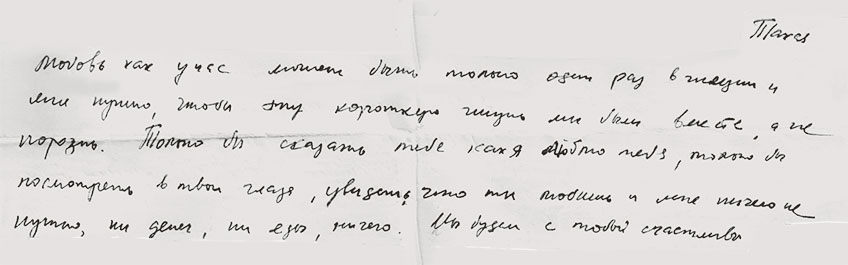 Такая
любовь как у нас может быть только один раз в жизни и
мне нужно, чтобы эту короткую жизнь мы были вместе, а не
порознь. Только бы сказать тебе как я люблю тебя, только бы
посмотреть в твои глаза, увидеть, что ты любишь и мне ничего не
нужно, ни денег, ни еды, ничего. Мы будем с тобой счастливы